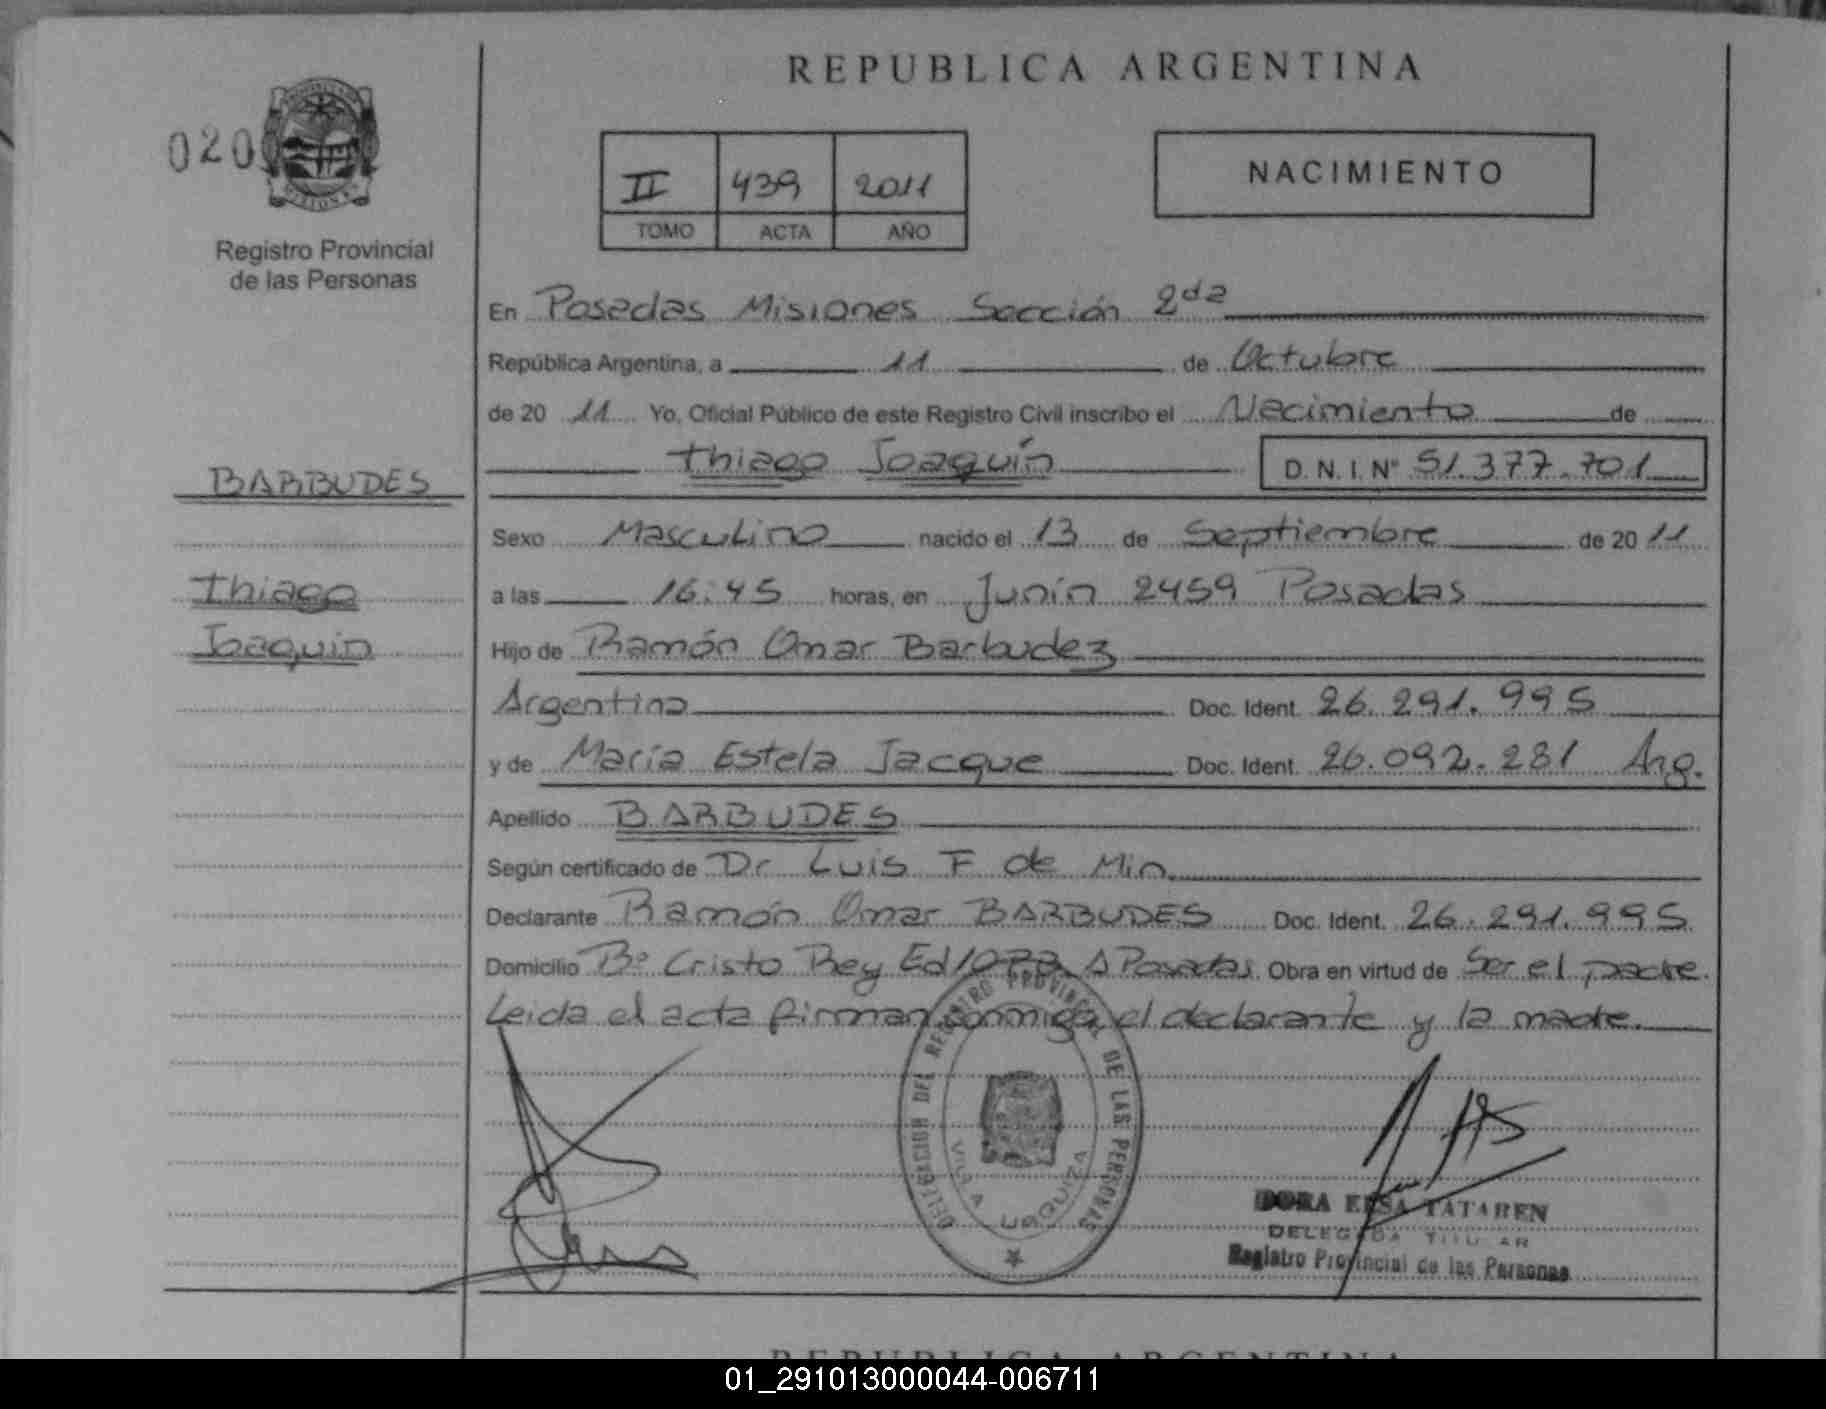 REPUBLICA ARGENTINA
020
Registro Provincial
de las Personas
II 439 2011
TOMO ACTA AÑO
NACIMIENTO
En Posadas Misiones Sección 2da
República Argentina, a 11 de Octubre
de 20 11 Yo, Oficial Público de este Registro Civil inscribo el Nacimiento de
Thiago Joaquín D.N.I.Nº 51.377.701
BARBUDES
Thiago
Joaquin
Sexo Masculino nacido el 13 de Septiembre de 20 11
a las 16:45 horas, en Junín 2459 Posadas
Hijo de Ramón Omar Barbudez
Argentino Doc. Ident. 26.291.995
y de María Estela Jacque Doc. Ident. 26.092.281 Arg.
Apellido BARBUDES
Según certificado de Dr Luis F de Min
Declarante Ramón Omar BARBUDES Doc. Ident. 26.291.995
Domicilio Bº Cristo Rey Posadas. Obra en virtud de Ser el padre.
Leida el acta firman conmigo el declarante y la madre.
DELEGACION DEL REGISTRO PROVINCIAL DE LAS PERSONAS
VILLA URQUIZA
DORA ELSA TATAREN
DELEGADA TITULAR
Registro Provincial de las Personas
REPUBLICA ARGENTINA
01_291013000044-006711